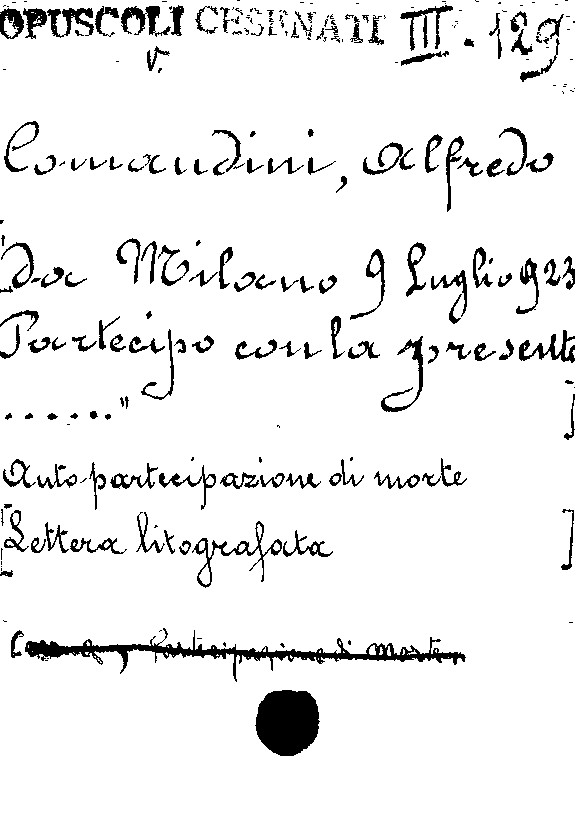 OPUSCOLI CESENATI III. 129
V.
Comandini, Alfredo
["da Milano 9 Luglio 923
Partecipo con la presente
......"]
Autopartecipazione di morte
[Lettera litografata]
Partecipazione di morte